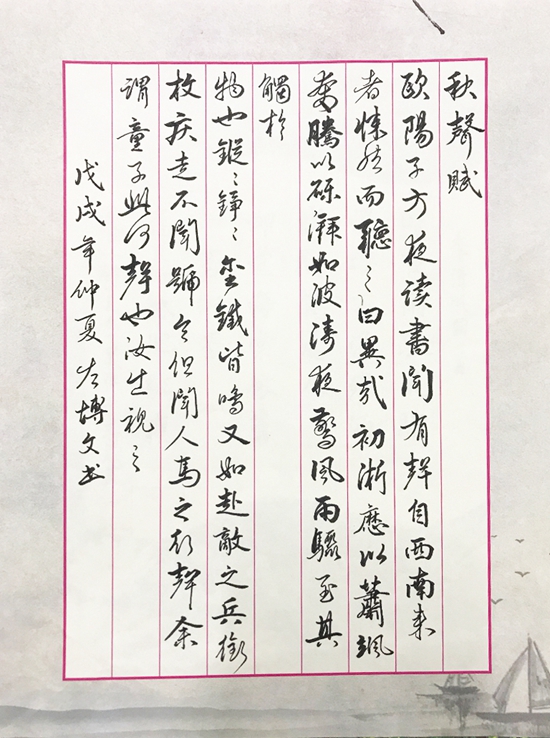 秋聲賦
歐陽子方夜读書聞有聲自西南来
者悚然而聽之曰異哉初淅瀝以蕭颯
奔騰以砰湃如波涛夜驚風雨驟至其
觸於
物也鏦〻錚〻金鐵皆鳴又如赴敵之兵銜
枚疾走不聞號令但聞人馬之行聲余
謂童子此何聲也汝出視之
戊戌年仲夏左博文书